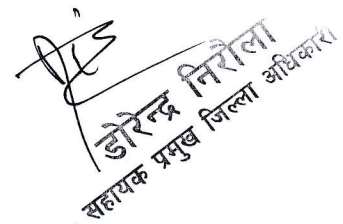 डोरेन्द्र निरौला
सहायक प्रमुख जिल्ला अधिकारी